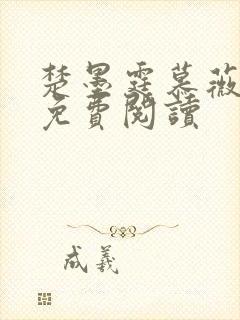 楚墨霆慕薇
免費閱讀
成羲